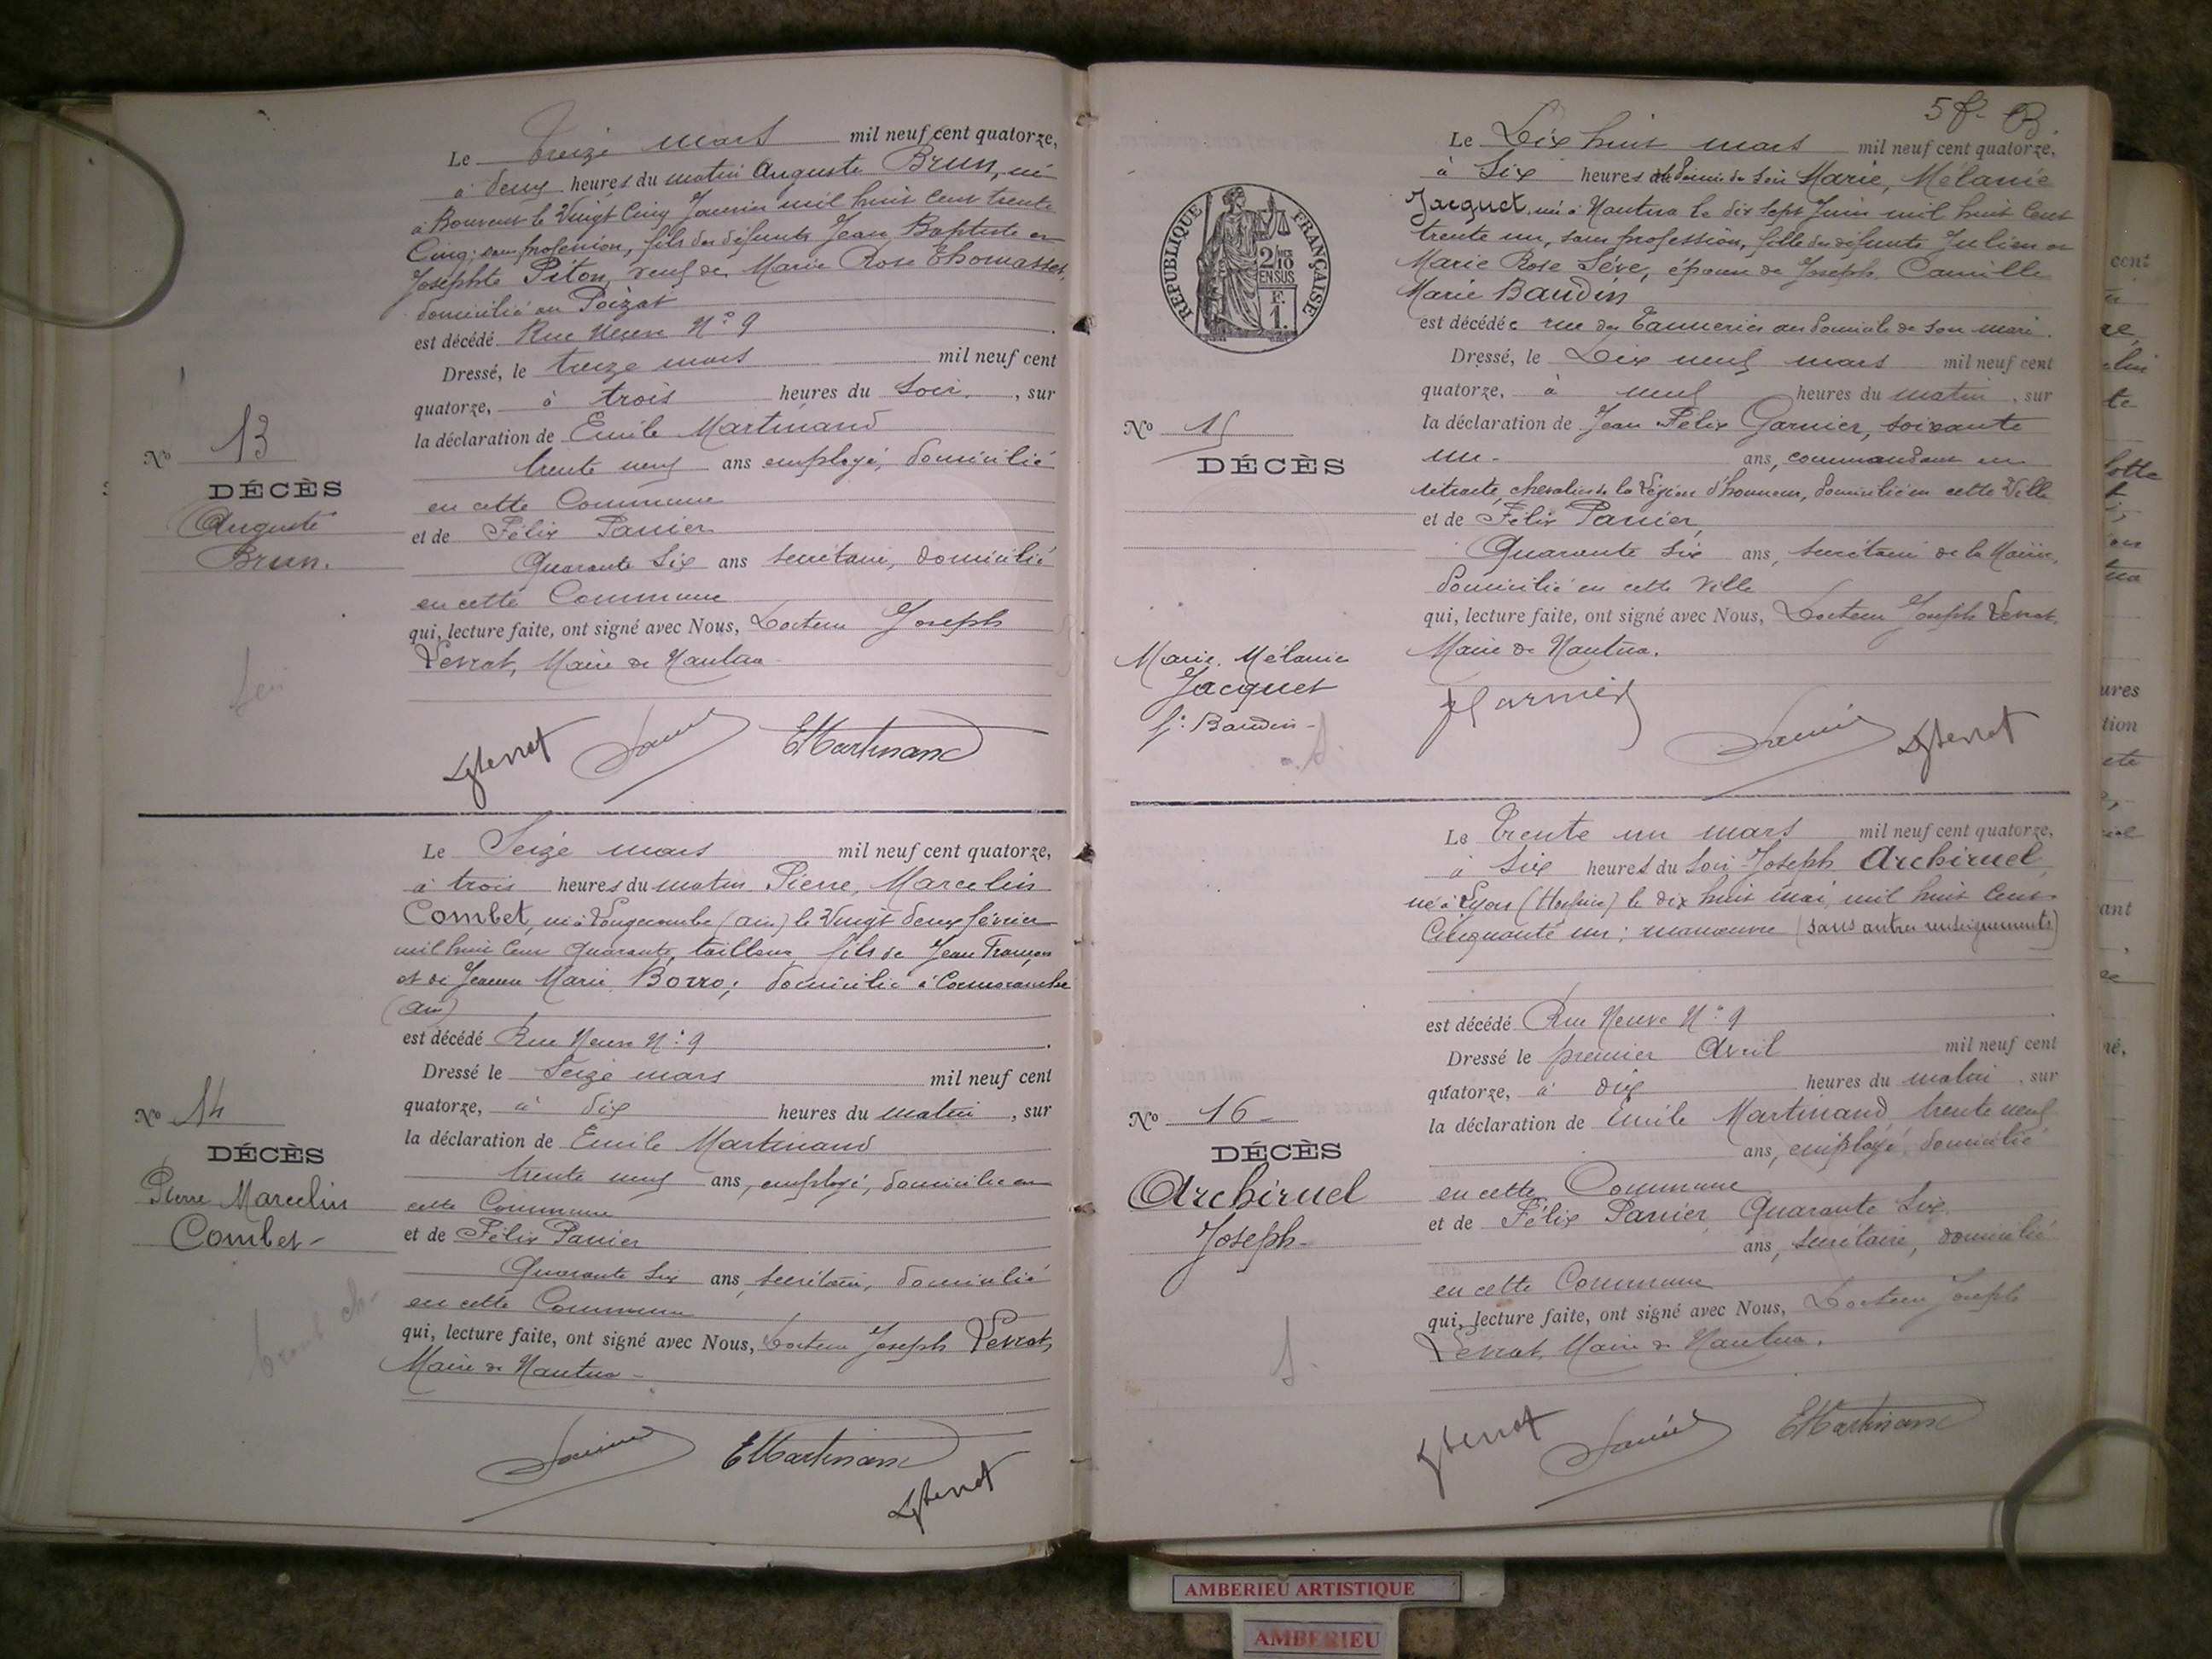 Le Treize mars mil neuf cent quatorze,
à deux heures du matin Auguste Brun, né
à Bouvent le Vingt Cinq Janvier mil huit cent trente
Cinq; sans profession, fils des défunts Jean Baptiste et
Josephte Piton, veuf de Marie Rose Thomasset,
domicilié au Poizat
est décédé Rue Neuve N° 9
Dressé, le treize mars mil neuf cent
quatorze, à trois heures du soir, sur
la déclaration de Emile Martinand
trente neuf ans employé, domicilié
en cette Commune
et de Félix Panier
Quarante Six ans secrétaire, domicilié
en cette Commune
qui, lecture faite, ont signé avec Nous, Docteur Joseph
Levrat, Maire de Nantua
No 13
DÉCÈS
Auguste
Brun.
EMartinand
Le Seize mars mil neuf cent quatorze,
à trois heures du matin Pierre, Marcelin
Combet, né à (Ain) le Vingt deux février
mil huit cent quarante, tailleur, fils de Jean François
et de Jeanne Marie Borro; domicilié à Cormoranche
(Ain)
est décédé Rue Neuve N° 9
Dressé le Seize mars mil neuf cent
quatorze, à dix heures du matin, sur
la déclaration de Emile Martinand
trente neuf ans, employé, domicilié en
cette Commune
et de Félix Panier
Quarante Six ans, secrétaire, domicilié
en cette Commune
qui, lecture faite, ont signé avec Nous, Docteur Joseph Levrat,
Maire de Nantua
No 14
DÉCÈS
Pierre Marcelin
Combet
EMartinand
5
Le Dix huit mars mil neuf cent quatorze,
à Six heures du soir Marie, Mélanie
Jacquet, née à Nantua le dix sept Juin mil huit cent
trente un, sans profession, fille des défunts Julien et
Marie Rose Sève, épouse de Joseph Camille
Marie Baudin
est décédée rue des Tanneries au domicile de son mari.
Dressé, le Dix neuf mars mil neuf cent
quatorze, à neuf heures du matin, sur
la déclaration de Jean Félix Garnier, soixante
un ans, commandant en
retraite, chevalier de la Légion d'honneur, domicilié en cette Ville
et de Félix Panier,
Quarante Six ans, secrétaire de la Mairie,
domicilié en cette Ville
qui, lecture faite, ont signé avec Nous, Docteur Joseph Levrat,
Maire de Nantua.
REPUBLIQUE FRANÇAISE
2/10
EN SUS
F.
1.
No 15
DÉCÈS
Marie, Mélanie
Jacquet
f: Baudin
Le trente un mars mil neuf cent quatorze,
à six heures du soir Joseph Archiruel,
né à Lyon (Hospice) le dix huit mai, mil huit cent
Cinquante un; manœuvre (sans autres renseignements)
est décédé Rue Neuve N° 9
Dressé le premier Avril mil neuf cent
quatorze, à dix heures du matin, sur
la déclaration de Emile Martinand, trente neuf
ans, employé, domicilié
en cette Commune
et de Félix Panier, Quarante Six
ans, secrétaire, domicilié
en cette Commune
qui, lecture faite, ont signé avec Nous, Docteur Joseph
Levrat, Maire de Nantua.
No 16
DÉCÈS
Archiruel
Joseph
EMartinand
AMBERIEU ARTISTIQUE
AMBERIEU